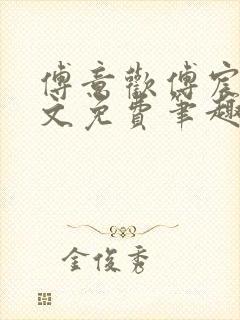 傅意歡傅宸
文免費筆趣
金俊秀